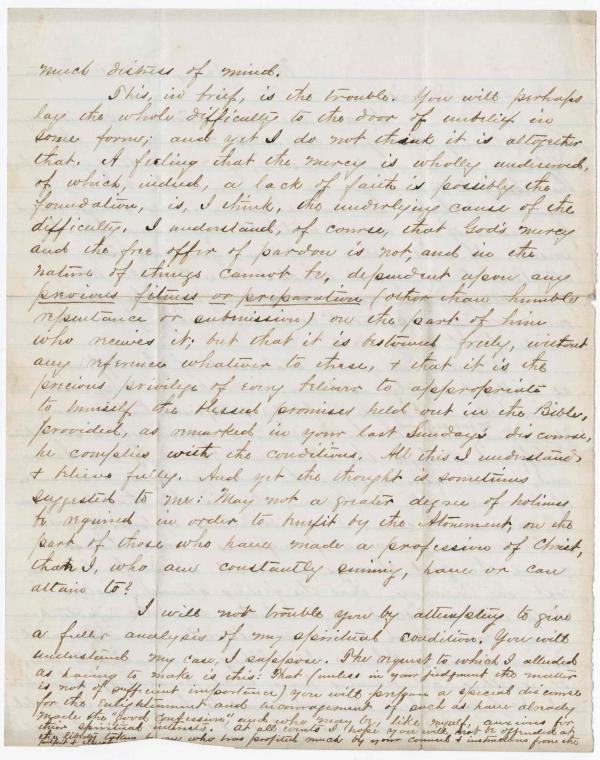 much distress of mind.
This, in brief, is the trouble. You will perhaps
lay the whole difficulty to the door of unbelief in
some form; and yet I do not think it is altogether
that. A feeling that the mercy is wholly undeserved,
of which, indeed, a lack of faith is possibly the
foundation, is, I think, the underlying cause of the
difficulty. I understand, of course, that God's mercy
and the free offer of pardon is not, and in the
nature of things cannot be, dependent upon any
previous fitness or preparation (other than humble
repentance or submission) on the part of him
who receives it; but that it is bestowed freely, without
any reference whatever to these, & that it is the
precious privilege of every believer to appropriate
to himself the blessed promises held out in the Bible,
provided, as remarked in your last Sunday's discourse,
he complies with the conditions. All this I understand
& believe fully. And yet the thought is sometimes
suggested to me: May not a greater degree of holiness
be required in order to benefit by the Atonement, on the
part of those who have made a profession of Christ,
than I, who am constantly sinning, have or can
attain to?
I will not trouble you by attempting to give
a fuller analysis of my spiritual condition. You will
understand my case, I suppose. The request to which I alluded
as having to make is this: That (unless in your judgment the matter
is not of sufficient importance) you will prepare a special discourse
for the enlightenment and encouragement of such as have already
made the "Good Confession" and who may be, like myself, anxious for
their spiritual interests. At all events I hope you will not be offended at
the liberty taken by one who has profited much by your counsel & instructions from the
pulpit &